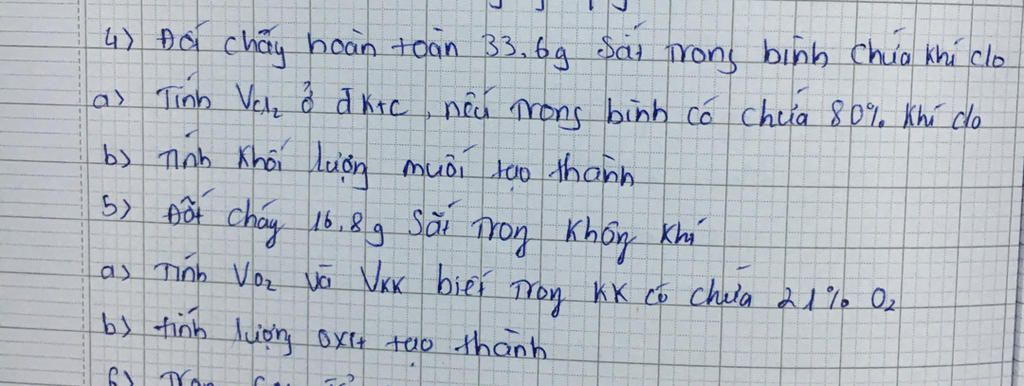 4) Đốt cháy hoàn toàn 33,6g Sắt trong bình chứa khí clo
a) Tính VCl2 ở đktc, nếu trong bình có chứa 80% khí clo
b) Tính khối lượng muối tạo thành
5) Đốt cháy 16,8g Sắt trong không khí
a) Tính VO2 và VKK biết trong KK có chứa 21% O2
b) tính lượng oxit tạo thành
6)